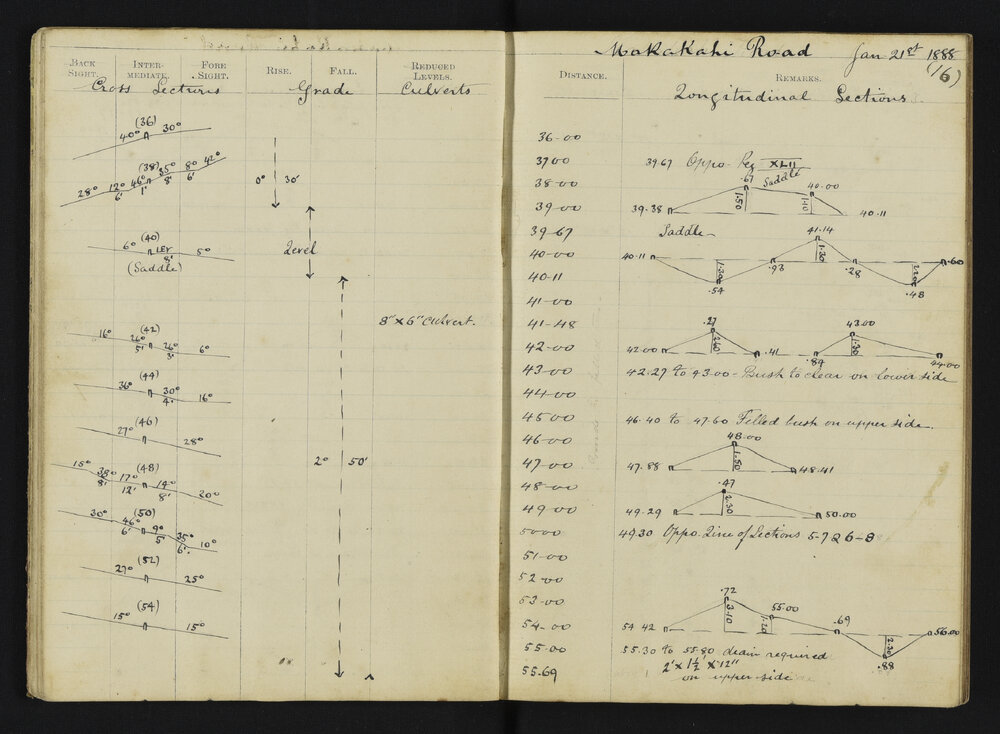 BACK SIGHT. INTER-MEDIATE. FORE SIGHT. RISE. FALL. REDUCED LEVELS.
Cross Sections Grade Culverts
(36)
40° 30°
(38)
28° 12° 46° 35° 8° 42°
6' 1' 8' 6'
0° 30'
(40)
6° LEV 5°
8'
(Saddle)
Level
8" x 6" Culvert.
(42)
16° 26° 26° 6°
5' 3'
(44)
36° 30° 16°
4'
(46)
27° 28°
(48)
15° 38° 17° 14° 20°
8' 12' 8'
2° 50'
(50)
30° 46° 9° 35° 10°
6' 5 6'
(52)
27° 25°
(54)
15° 15°
Makakahi Road Jan 21st 1888
(16)
DISTANCE. REMARKS.
Longitudinal Sections
36-00
37-00
38-00
39-00
39-67
40-00
40-11
41-00
41-48
42-00
43-00
44-00
45-00
46-00
47-00
48-00
49-00
5000
51-00
52-00
53-00
54-00
55-00
55.69
39.67 Oppo. Peg XLII
Saddle
.67 40.00
39.38 1.50 1.10 40.11
Saddle
41.14
40.11 1.20 .93 1.20 .28 2.20 .60
.54 .48
.27 43.00
42.00 2.60 .41 .89 1.30 44.00
42.27 to 43.00 - Bush to clear on lower side
46.40 to 47.60 Felled bush on upper side.
48.00
47.88 1.50 48.41
.47
49.29 2.30 50.00
49.30 Oppo. Line of Sections 5-7 & 6-8
.72 55.00
54 42 3.10 1.20 .69 2.30 56.00
.88
55.30 to 55.80 drain required
2' x 1½' x 12"
on upper side